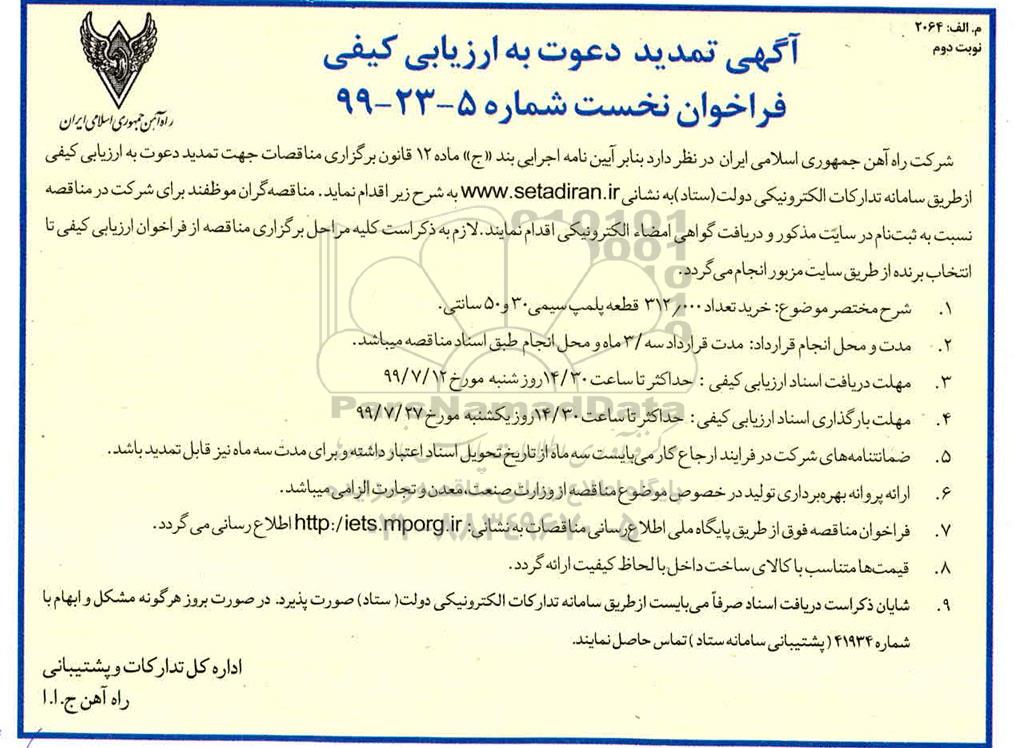 م. الف: ۲۰۶۴
نوبت دوم
راه‌آهن جمهوری اسلامی ایران
آگهی تمدید دعوت به ارزیابی کیفی
فراخوان نخست شماره ۵-۲۳-۹۹
شرکت راه آهن جمهوری اسلامی ایران در نظر دارد بنابر آیین نامه اجرایی بند «ج» ماده ۱۲ قانون برگزاری مناقصات جهت تمدید دعوت به ارزیابی کیفی
ازطریق سامانه تدارکات الکترونیکی دولت(ستاد)به نشانی www.setadiran.ir به شرح زیر اقدام نماید. مناقصه‌گران موظفند برای شرکت در مناقصه
نسبت به ثبت‌نام در سایت مذکور و دریافت گواهی امضاء الکترونیکی اقدام نمایند.لازم به ذکراست کلیه مراحل برگزاری مناقصه از فراخوان ارزیابی کیفی تا
انتخاب برنده از طریق سایت مزبور انجام می‌گردد.
۱. شرح مختصر موضوع: خرید تعداد ۳۱۲٫۰۰۰ قطعه پلمپ سیمی ۳۰ و ۵۰ سانتی.
۲. مدت و محل انجام قرارداد: مدت قرارداد سه /۳ ماه و محل انجام طبق اسناد مناقصه میباشد.
۳. مهلت دریافت اسناد ارزیابی کیفی : حداکثر تا ساعت ۱۴/۳۰ روز شنبه مورخ ۹۹/۷/۱۲
۴. مهلت بارگذاری اسناد ارزیابی کیفی : حداکثر تا ساعت ۱۴/۳۰ روز یکشنبه مورخ ۹۹/۷/۲۷
۵. ضمانتنامه‌های شرکت در فرایند ارجاع کار می‌بایست سه ماه از تاریخ تحویل اسناد اعتبار داشته و برای مدت سه ماه نیز قابل تمدید باشد.
۶. ارائه پروانه بهره‌برداری تولید در خصوص موضوع مناقصه از وزارت صنعت،معدن و تجارت الزامی میباشد.
۷. فراخوان مناقصه فوق از طریق پایگاه ملی اطلاع‌رسانی مناقصات به نشانی: http:/iets.mporg.ir اطلاع رسانی می گردد.
۸. قیمت‌ها متناسب با کالای ساخت داخل با لحاظ کیفیت ارائه گردد.
۹. شایان ذکراست دریافت اسناد صرفاً می‌بایست ازطریق سامانه تدارکات الکترونیکی دولت( ستاد) صورت پذیرد. در صورت بروز هرگونه مشکل و ابهام با
شماره ۴۱۹۳۴ ( پشتیبانی سامانه ستاد ) تماس حاصل نمایند.
اداره کل تدارکات و پشتیبانی
راه آهن ج.ا.ا
ParsNamadData
پایگاه اطلاع رسانی مناقصه و مزایده
۰۲۱-۸۸۳۴۹۶۷۰-۵